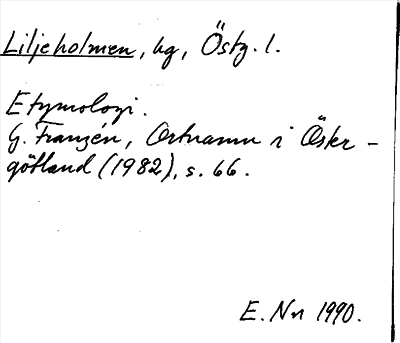 Liljeholmen, hg, Östg. l.
Etymologi.
G. Franzén, Ortnamn i Öster-
götland (1982), s. 66.
E. Nn 1990.